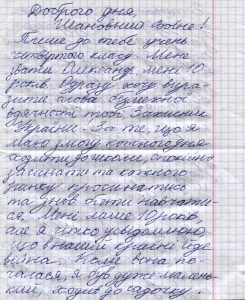 Доброго дня,
Шановний воїне!
Пише до тебе учень
четвертого класу. Мене
звати Олександр, мені 10
років. Одразу хочу вира-
зити слова безмежної
вдячності тобі, Захисник
України. За те, що я
маю змогу кожного дня
ходити до школи, спокійно
засинати та кожного
ранку просинатись
та знов бути навчати-
ся. Мені лише 10 років,
але я чітко усвідомлюю,
що в нашій країні іде
війна. Коли вона по-
чалася, я був дуже малень-
кий, ходив до садочку.